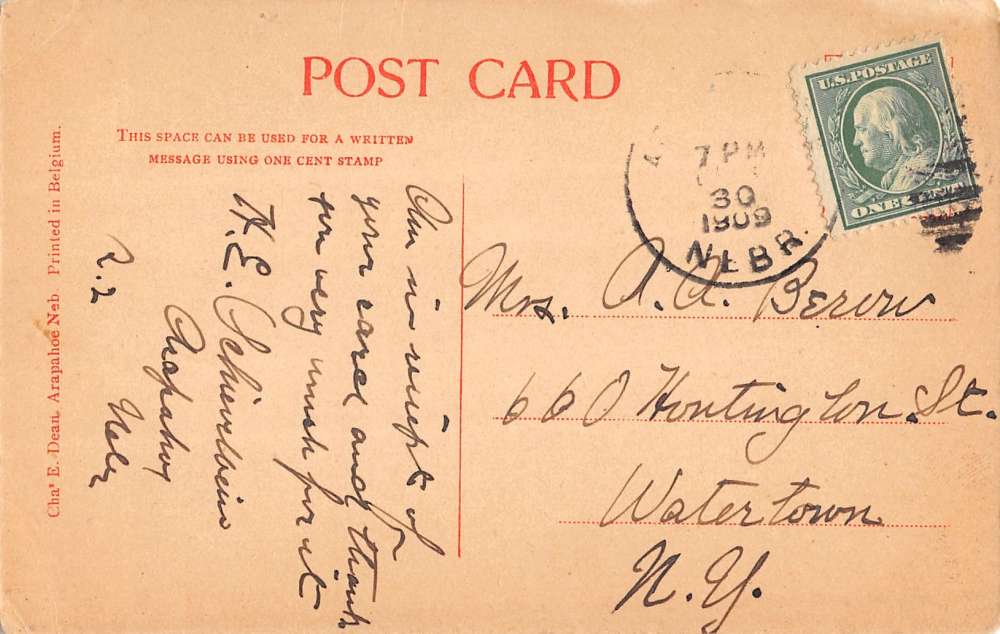 POST CARD
THIS SPACE CAN BE USED FOR A WRITTEN
MESSAGE USING ONE CENT STAMP
U.S. POSTAGE
ONE CENT
7 PM
30
1909
NEBR.
Am in receipt of
your card and thank
you very much for it
H. E.
Arapahoe
Nebr
R. 2
Mrs. A. A.
660 Huntington St.
Watertown
N. Y.
Chas E. Dean, Arapahoe Neb. Printed in Belgium.